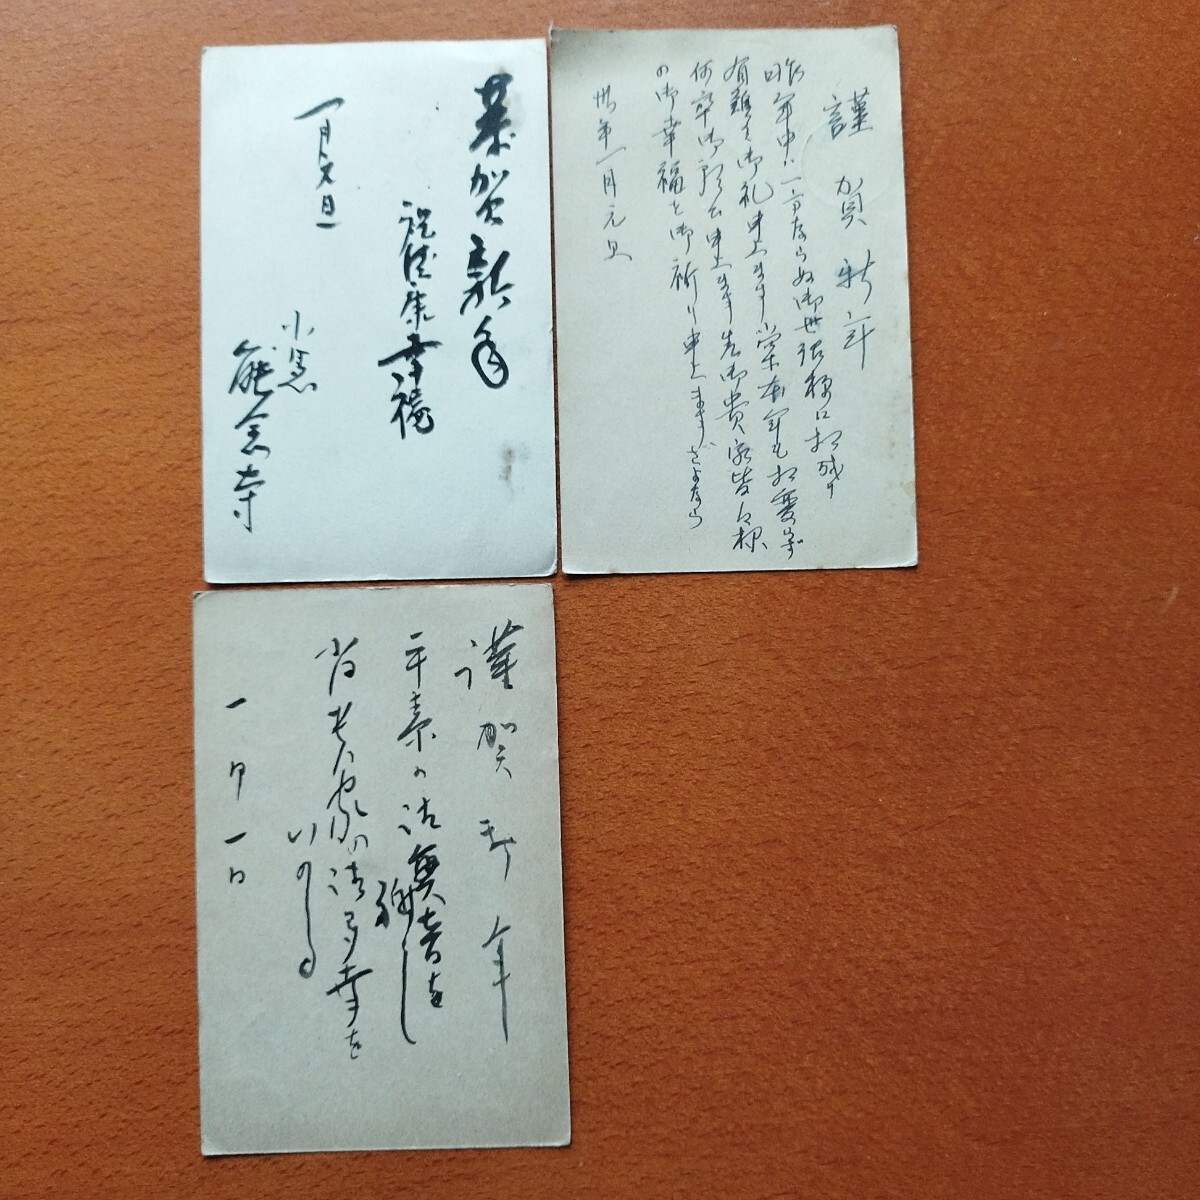 恭賀新年
祝健康幸福
一月元旦
小濱
能念寺
謹賀新年
昨年中は一方ならぬ御世話様に相成り
有難く御礼申上ます 尚本年も相変らず
何卒御願ひ申上ます 先は御貴家皆々様
の御幸福を御祈り申上ます さよなら
卅年一月元旦
謹賀新年
平素の御無音を
謝し
尚貴家の御多幸を
いのる
一月一日